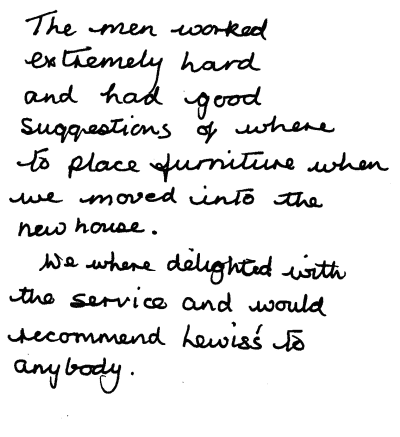 The men worked
extremely hard
and had good
suggestions of where
to place furniture when
we moved into the
new house.
We where delighted with
the service and would
recommend Lewis's to
anybody.